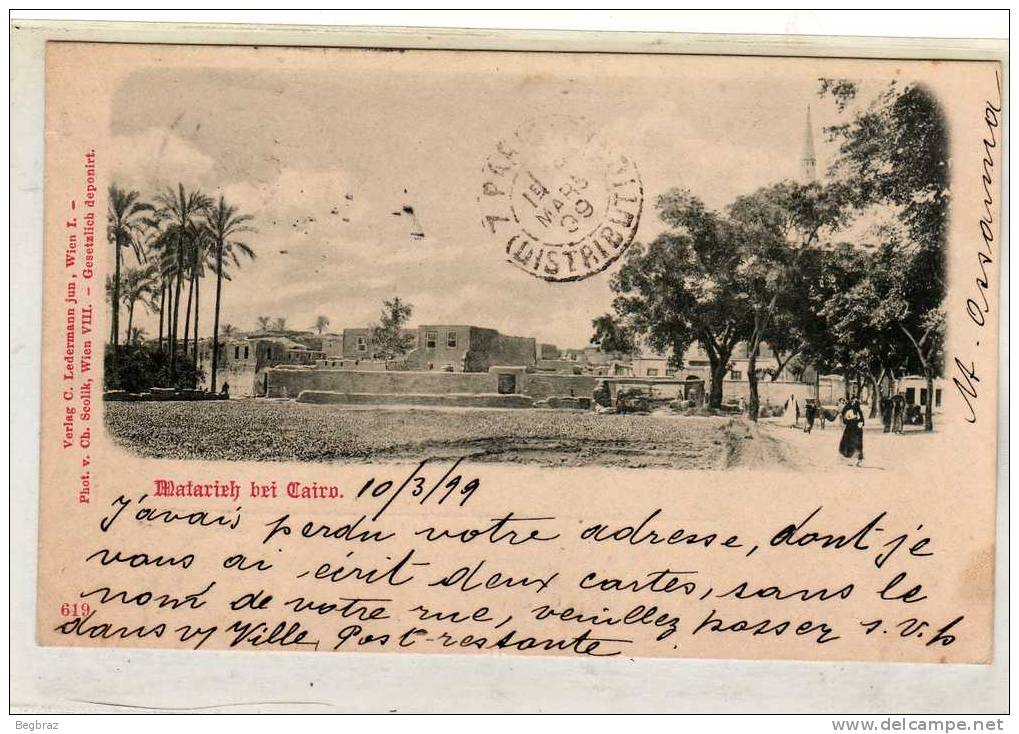 Verlag C. Ledermann jun, Wien I. –
Phot. v. Ch. Scolik, Wien VIII. – Gesetzlich deponirt.
7 PAR
15
MARS
99
DISTRIBUTI
Matarieh bei Cairo. 10/3/99
J'avais perdu votre adresse, dont je
vous ai écrit deux cartes, sans le
nom de votre rue, veuillez passer s.v.p
dans v/ Ville, Post-restante.
619
M. Osanna
Begbraz
www.delcampe.net